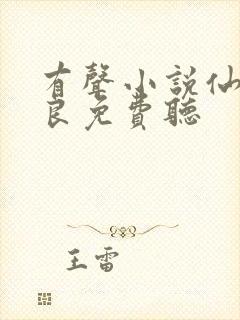 有聲小說仙
良免費聽
王雷